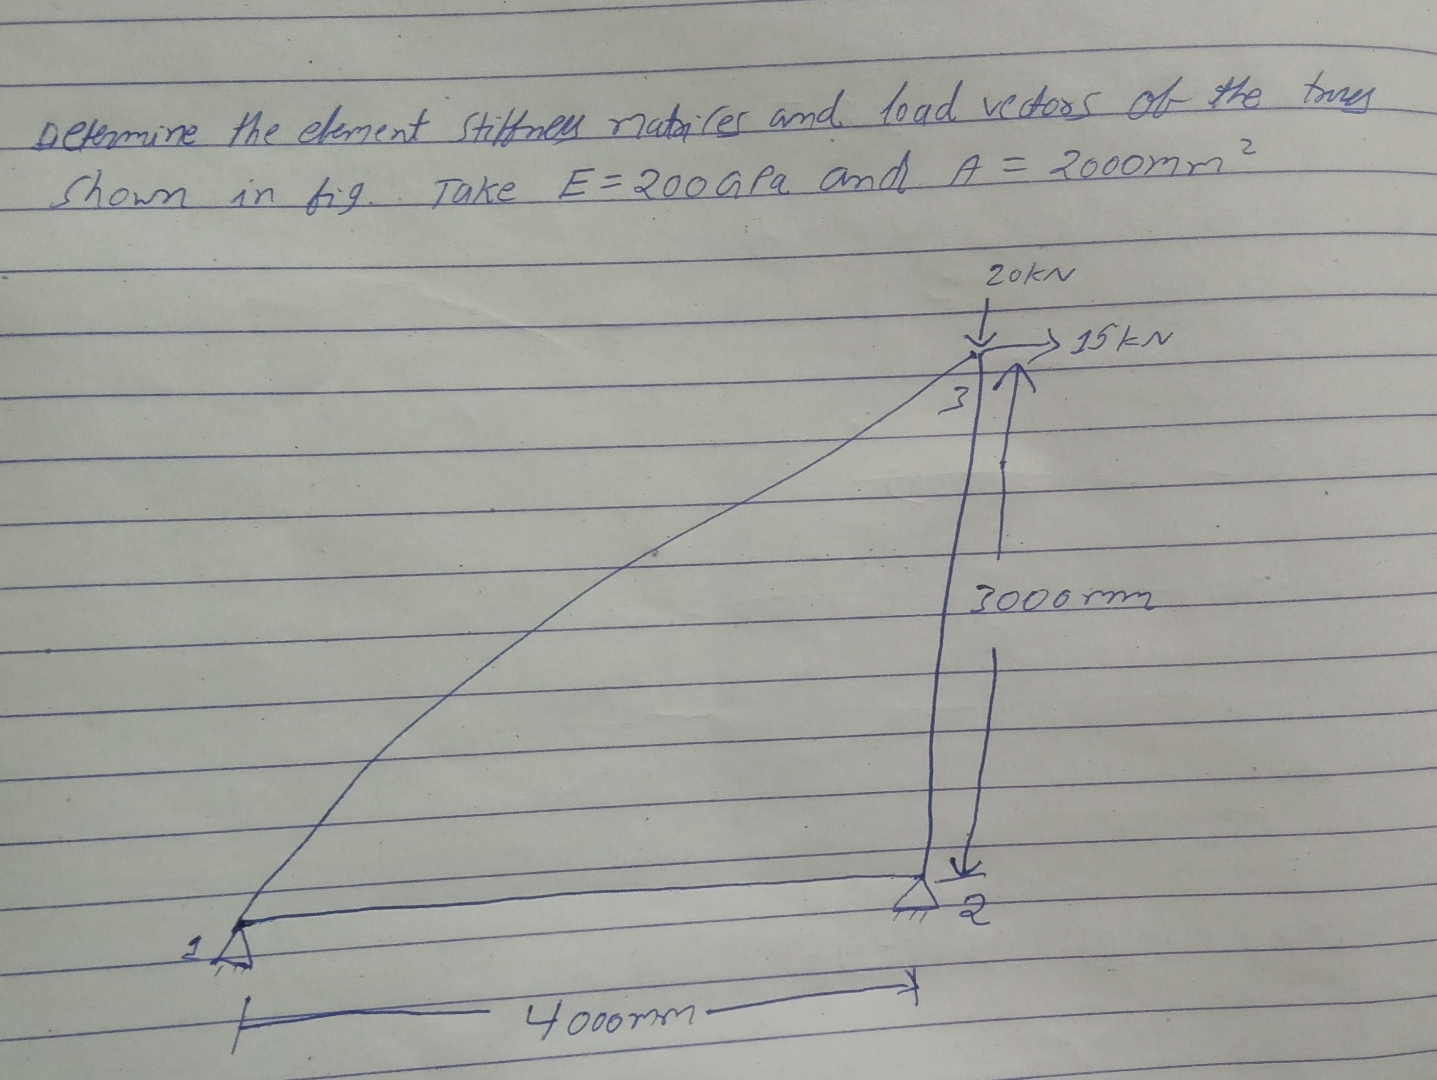 Determine the element stiffness matrices and load vectors of the truss
shown in fig. Take E=200GPa and A = 2000mm²
20kN
15kN
3
3000mm
1
2
4000mm